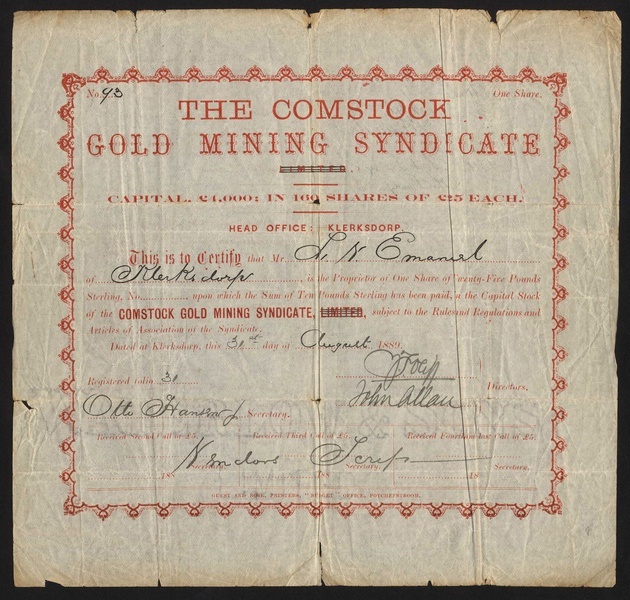 No 93 One Share.
THE COMSTOCK
GOLD MINING SYNDICATE
LIMITED.
CAPITAL, £4,000; IN 160 SHARES OF £25 EACH.
HEAD OFFICE: KLERKSDORP.
This is to Certify that Mr L. N. Emanuel
of Klerksdorp, is the Proprietor of One Share of Twenty-Five Pounds
Sterling, No. upon which the Sum of Ten Pounds Sterling has been paid, in the Capital Stock
of the COMSTOCK GOLD MINING SYNDICATE, LIMITED, subject to the Rules and Regulations and
Articles of Association of the Syndicate.
Dated at Klerksdorp, this 30st day of August 1889.
Registered folio 30
John Allan Directors.
Otto Secretary.
Received Second Call of £5. Received Third Call of £5. Received Fourth Call of £5.
Vendors Scrip
Secretary. Secretary. Secretary.
188 188 18
PRINTERS, "BUDGET" OFFICE, POTCHEFSTROOM.